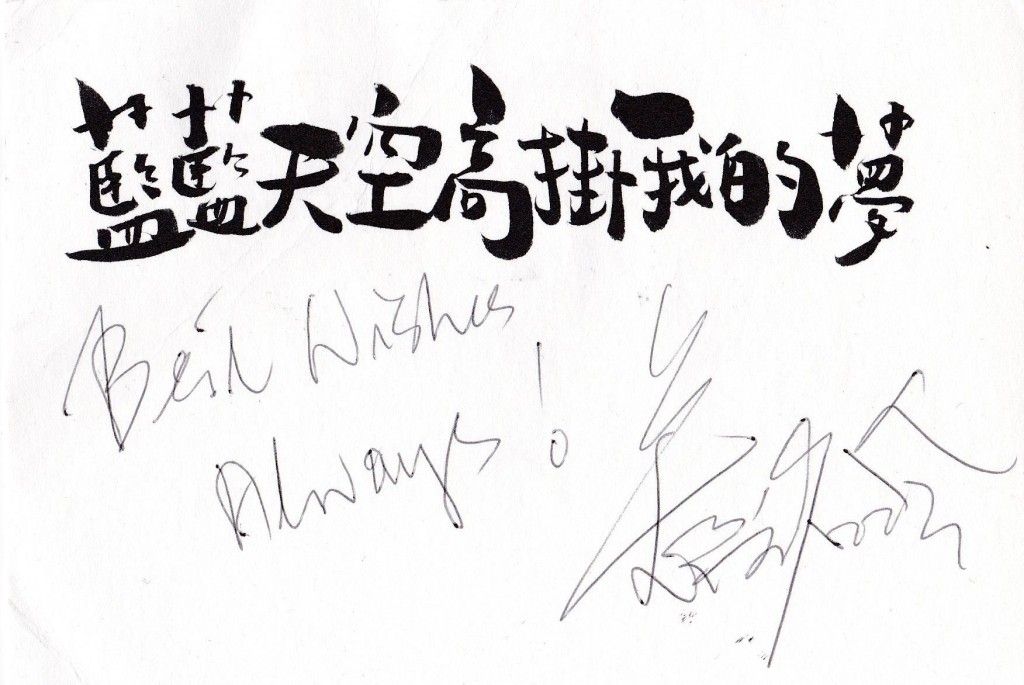 藍藍天空高掛我的夢
Best Wishes
Always!